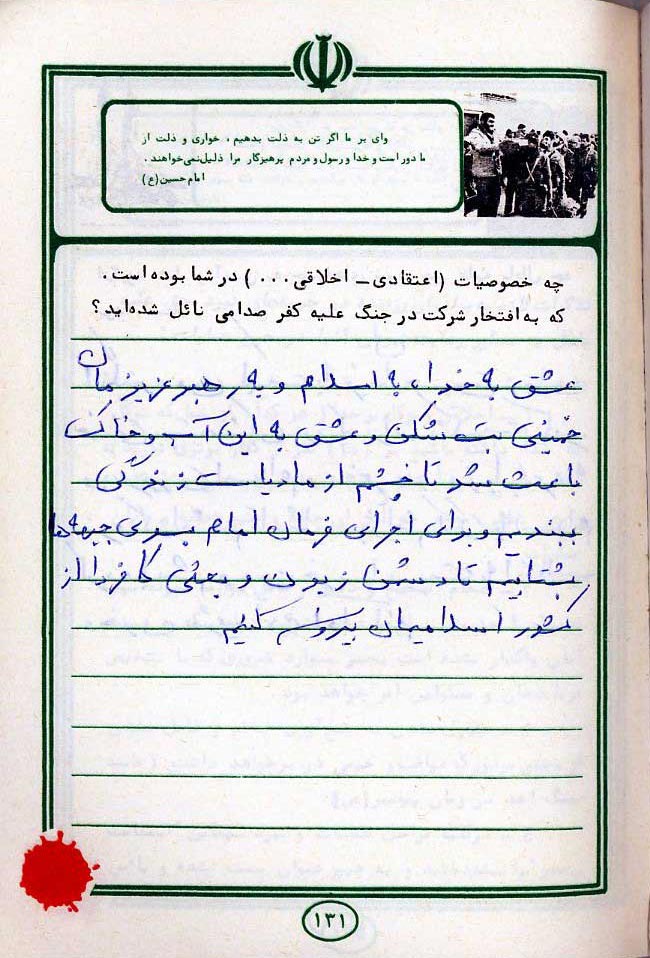 وای بر ما اگر تن به ذلت بدهیم، خواری و ذلت از
ما دور است و خدا و رسول و مردم پرهیزگار مرا ذلیل نمی‌خواهند.
امام حسین (ع)
چه خصوصیات (اعتقادی ـ اخلاقی ...) در شما بوده است.
که به افتخار شرکت در جنگ علیه کفر صدامی نائل شده‌اید؟
عشق به خدا، به اسلام و به رهبر عزیزمان
خمینی بت شکن و عشق به این آب و خاک
باعث شد تا چشم از مادیات زندگی
ببندیم و برای اجرای فرمان امام بسوی جبهه‌ها
بشتابیم تا دشمن زبون و بعثی کافر را از
کشور اسلامیمان بیرون کنیم
۱۳۱